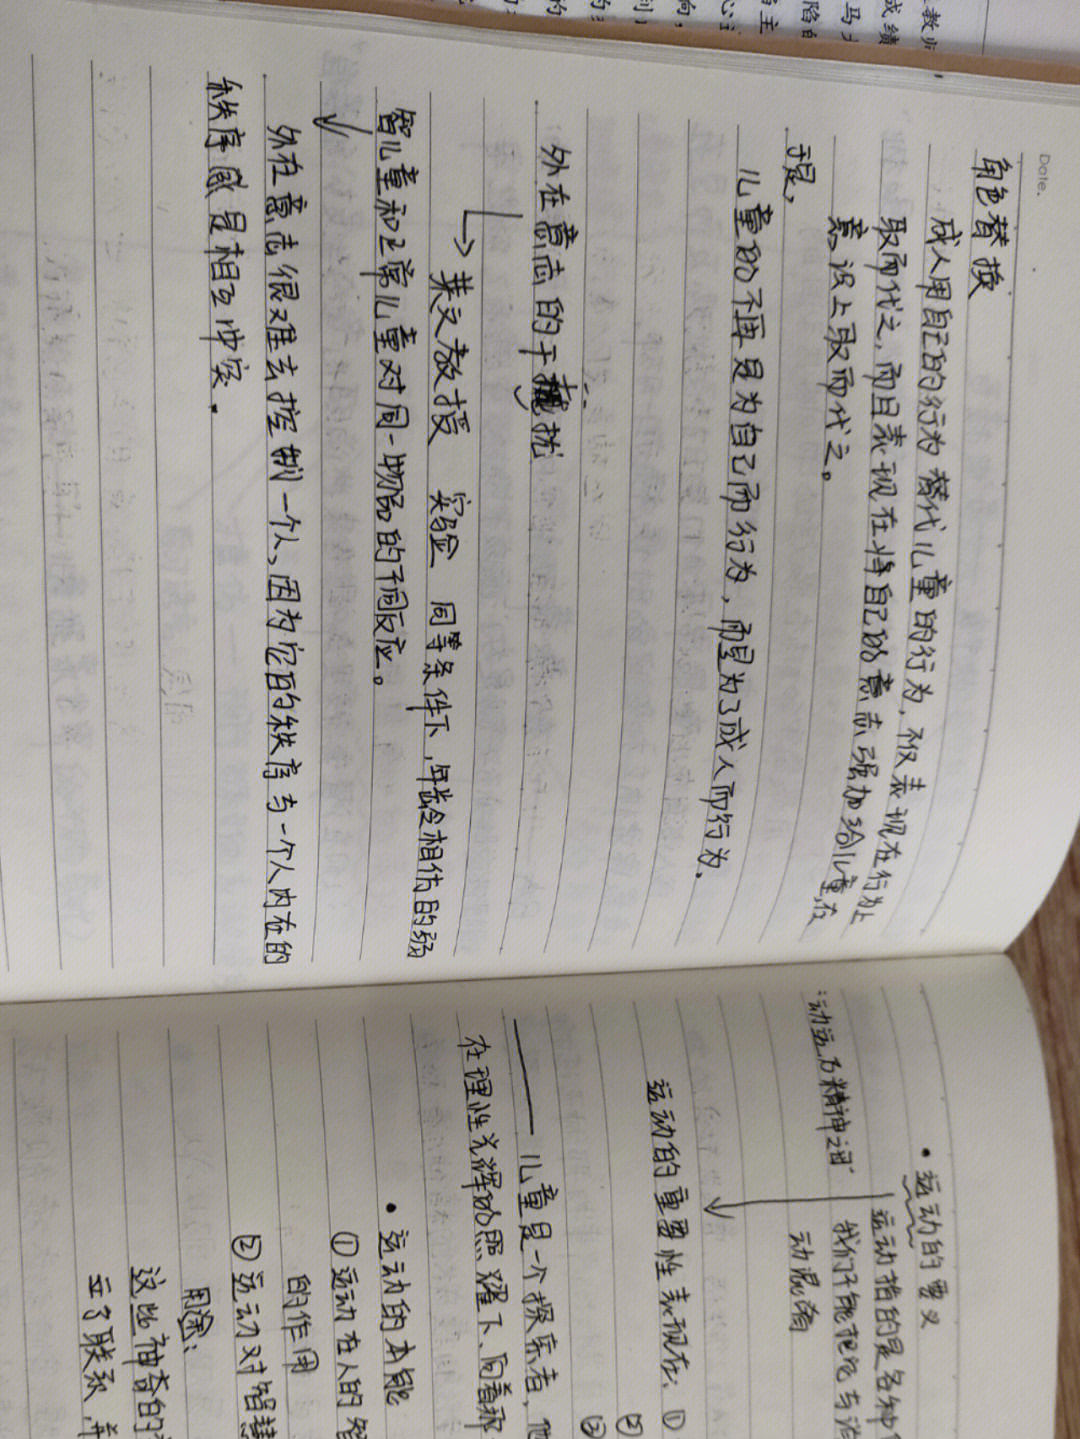 Date.
角色替换
成人用自己的行为替代儿童的行为,不仅表现在行为上
取而代之,而且表现在将自己的意志强加给儿童,在
意识上取而代之。
于是,
儿童的不再是为自己而行为,而是为了成人而行为。
外在意志的干扰
莱文教授 实验 同等条件下,年龄相仿的弱
智儿童和正常儿童对同一物品的不同反应。
外在意志很难去控制一个人,因为它的秩序与一个人内在的
秩序感是相互冲突.
·运动的意义
运动指的是各种
我们不能把它与
动混淆
运动的重要性表现在:①
②
③
——儿童是一个探索者,他
在理性光辉的照耀下、向着那
·运动的本能
①运动在人的智
的作用
②运动对智慧
用途:
这些神奇的
立了联系,并